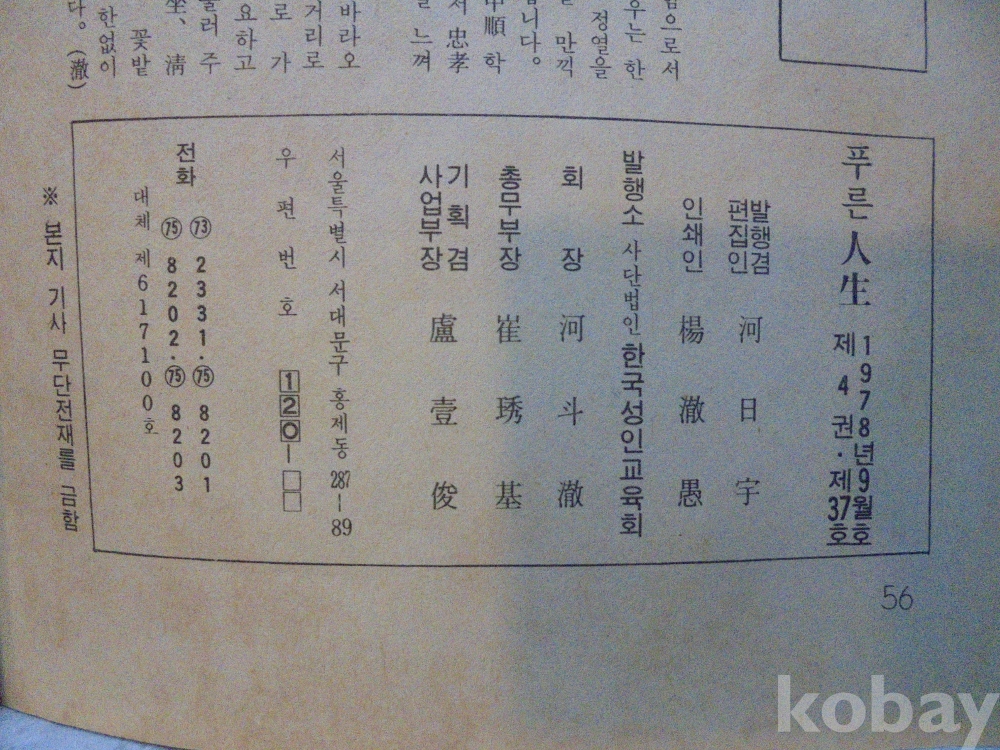 함으로서
우는 한
정열을
만끽
니다.
中順 학
서 忠孝
느껴
바라오
거리로
로 가
요하고
둘러 주
坐、淸
꽃밭
한없이
다。(澈)
푸른 人生
1978년 9월호
제 4 권·제37호
발행겸
편집인 河日宇
인쇄인 楊澈愚
발행소 사단법인 한국성인교육회
회장 河斗澈
총무부장 崔琇基
기획겸
사업부장 盧壹俊
서울특별시 서대문구 홍제동 287-89
우편번호 120-□□
전화 ㉓ 2331·㉕ 8201
㉕ 8202·㉕ 8203
대체 제617100호
※ 본지 기사 무단전재를 금함
56
kobay